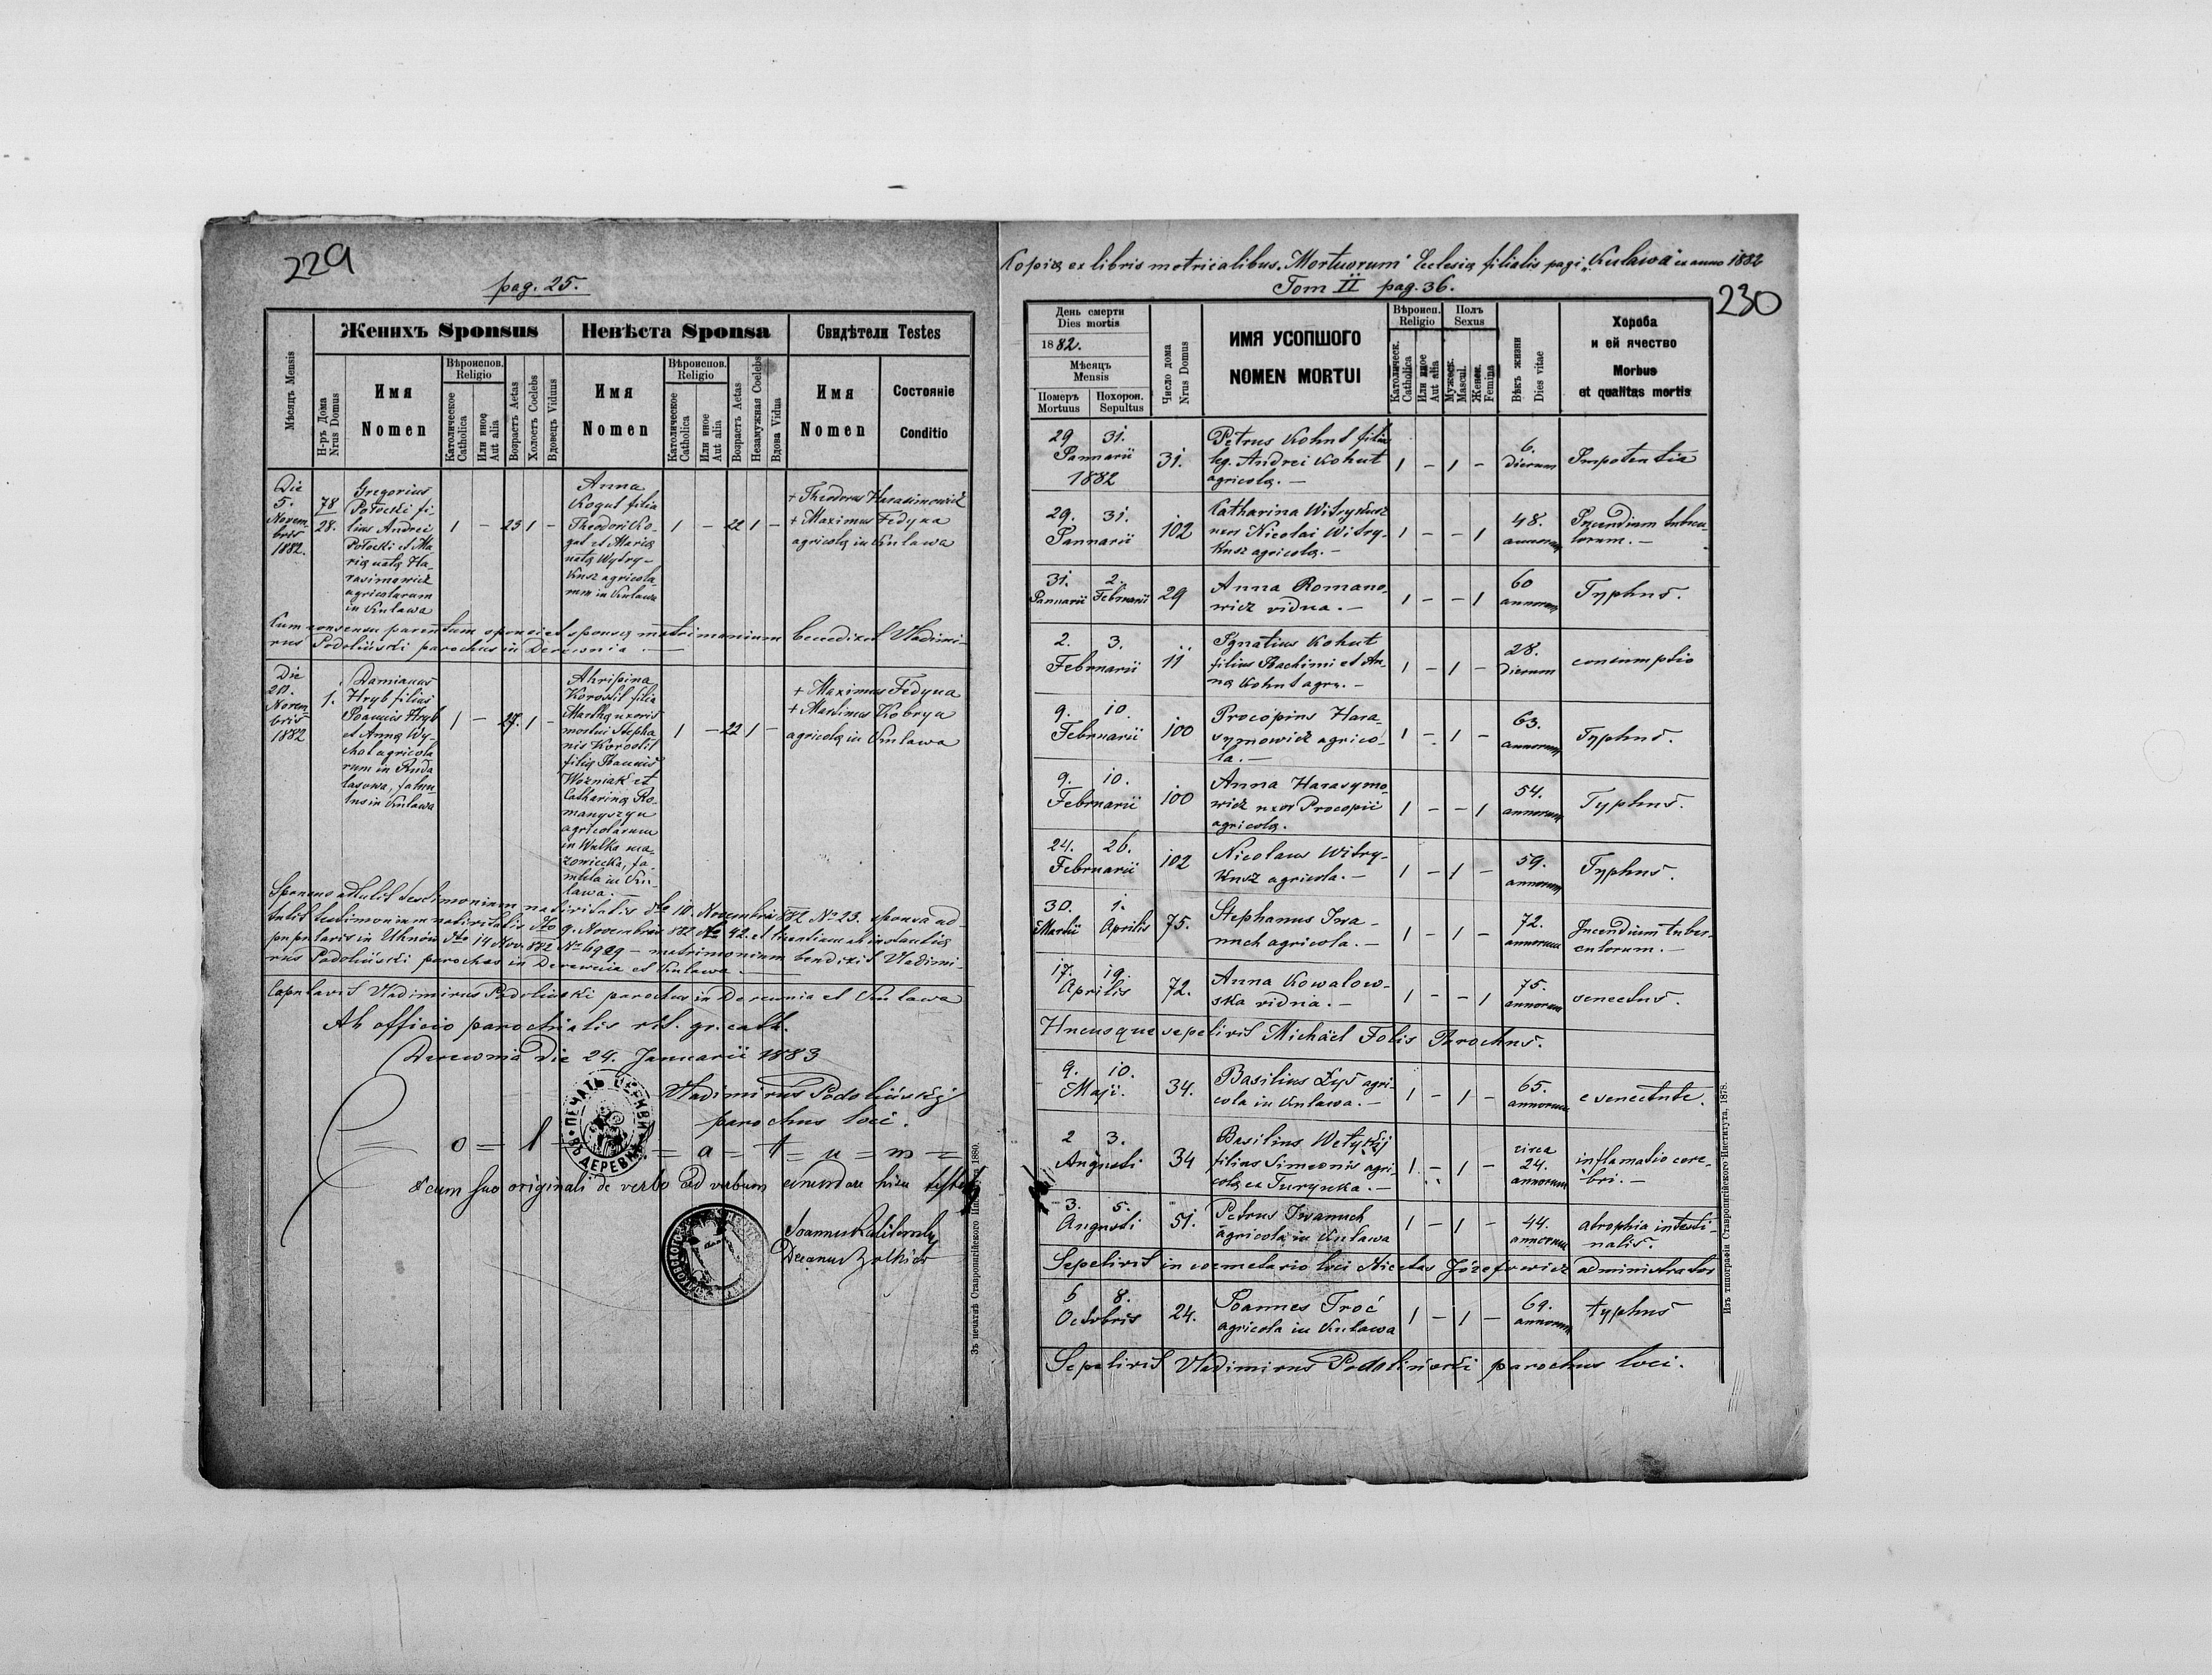 229
pag. 25.
Женихъ Sponsus
Невѣста Sponsa
Свидѣтели Testes
Мѣсяцъ Mensis
Н-ръ Дома
Nrus Domus
Имя
Nomen
Вѣроиспов.
Religio
Католическое
Catholica
Или иное
Aut alia
Возрастъ Aetas
Холостъ Coelebs
Вдовецъ Viduus
Имя
Nomen
Вѣроиспов.
Religio
Католическое
Catholica
Или иное
Aut alia
Возрастъ Aetas
Незамужная Coelebs
Вдова Vidua
Имя
Nomen
Состоянie
Conditio
Die
5.
Novem-
bris
1882.
78
28.
Gregorius
Potocki fi-
lius Andrei
Potocki et Ma
ria nata Ha-
rasimowicz
agricolarum
in Kulawa
1 - 23 1 -
Anna
Kogut filia
Theodori Ko-
gut et Maria
nata Wytry-
kusz agricola-
rum in Kulawa
1 - 22 1 -
+ Theodorus Harasimowicz
+ Maximus Fedyna
agricola in Kulawa
Cum consensu parentum sponsi et sponsa matrimonium benedixit Vladimi-
rus Podoliński parochus in Derewnia
Die
20.
Novem-
bris
1882
1.
Damianus
Hryb filius
Joannis Hryb
et Anna Wy-
chot agricola
rum in Ruda
lasowa, famu-
lus in Kulawa
1 - 27. 1 -
Ahripina
Korostil filia
Martha uxoris
mortui Stepha
nis Korostil
filia Joannis
Wozniak et
Catharina Ro-
manyszyn
agricolarum
in Wulka ma-
zowiecka, fa-
mula in Ku-
lawa.
1 - 22 1 -
+ Maximus Fedyna
+ Martinus Kobryn
agricola in Kulawa
Sponsus attulit testimonium nativitatis dto 10. Novembris 882 No 23. sponsa ad
tulit testimonium nativitatis dto 9. Novembris 882 No 42. et licentiam ab instantia
pupularis in Uhnów dto 14 Nov. 882 No 6929 - matrimonium bendixit Vladimi-
rus Podoliński parochus in Derewnia et Kulawa.
Copulavit Vladimirus Podoliński parochus in Derewnia et Kulawa
Ab officio parochialis rit. gr. cath.
Derewnia Die 24. Januarii 1883
Vladimirus Podoliński
parochus loci.
ПЕЧАТЬ ЦЕРКВИ ВЪ ДЕРЕВНИ
= o = l = = a = t = u = m =
cum suo originali de verbo ad verbum
Decanus
Зъ печатнѣ Ставропигійского Института 1880.
Kopia ex libris metricalibus "Mortuorum" Eclesia filialis pagi "Kulawa" ex anno 1882
Tom II pag. 36.
230
День смерти
Dies mortis
1882.
Мѣсяцъ
Mensis
Померъ
Mortuus
Похорон.
Sepultus
Число дома
Nrus Domus
ИМЯ УСОПШОГО
NOMEN MORTUI
Вѣроисп.
Religio
Католическ.
Catholica
Или иное
Aut alia
Полъ
Sexus
Мужеск.
Mascul.
Женск.
Femina
Вѣкъ жизни
Dies vitae
Хороба
и ей ячество
Morbus
et qualitas mortis
29 31.
Januarii
1882
31.
Petrus Kohut filius
leg. Andrei Kohut
agricola. -
1 - 1 -
6.
dierum
Impotentia
29. 31.
Januarii
102
Catharina Witrykusz
uxor Nicolai Witry-
kusz agricola. -
1 - - 1
48.
annorum
Incendium tubercu-
lorum. -
31. 2.
Januarii Februarii
29
Anna Romano-
wicz vidua. -
1 - - 1
60
annorum
Typhus.
2. 3.
Februarii
11
Ignatius Kohut
filius Joachimi et An-
na Kohut agr. -
1 - 1 -
28.
dierum
consumptio
9. 10.
Februarii
100
Procopius Hara-
symowicz agrico-
la. -
1 - 1 -
63.
annorum
Typhus.
9. 10.
Februarii
100
Anna Harasymo-
wicz uxor Procopii
agricola.
1 - - 1
54.
annorum
Typhus.
24. 26.
Februarii
102
Nicolaus Witry-
kusz agricola. -
1 - 1 -
59.
annorum
Typhus.
30. 1.
Martii Aprilis
75.
Stephanus Iwa-
nuch agricola. -
1 - 1 -
72.
annorum
Incendium tuber-
culorum. -
17. 19.
Aprilis
72.
Anna Kowalow-
ska vidua. -
1 - - 1
75.
annorum
senectus.
Hucusque sepelivit Michäel Folis Parochus.
9. 10.
Maji.
34.
Basilius Łyś agri-
cola in Kulawa. -
1 - 1 -
65.
annorum
e senectute.
2 3.
Augusti
34
Basilius Wetykij
filius Simeonis agri-
cola ex Turynka. -
1 - 1 -
circa
24.
annorum
inflamatio cere-
bri. -
3. 5.
Augusti
51.
Petrus Iwanuch
agricola in Kulawa
1 - 1 -
44.
annorum
atrophia intesti-
nalis.
Sepelivit in coemetario loci Nicetas Józefowicz administrator
6 8.
Octobris
24.
Joannes Troć
agricola in Kulawa
1 - 1 -
69.
annorum
typhus
Sepelivit Vladimirus Podoliński parochus loci.
Изъ типографіи Ставропигійского Института, 1878.